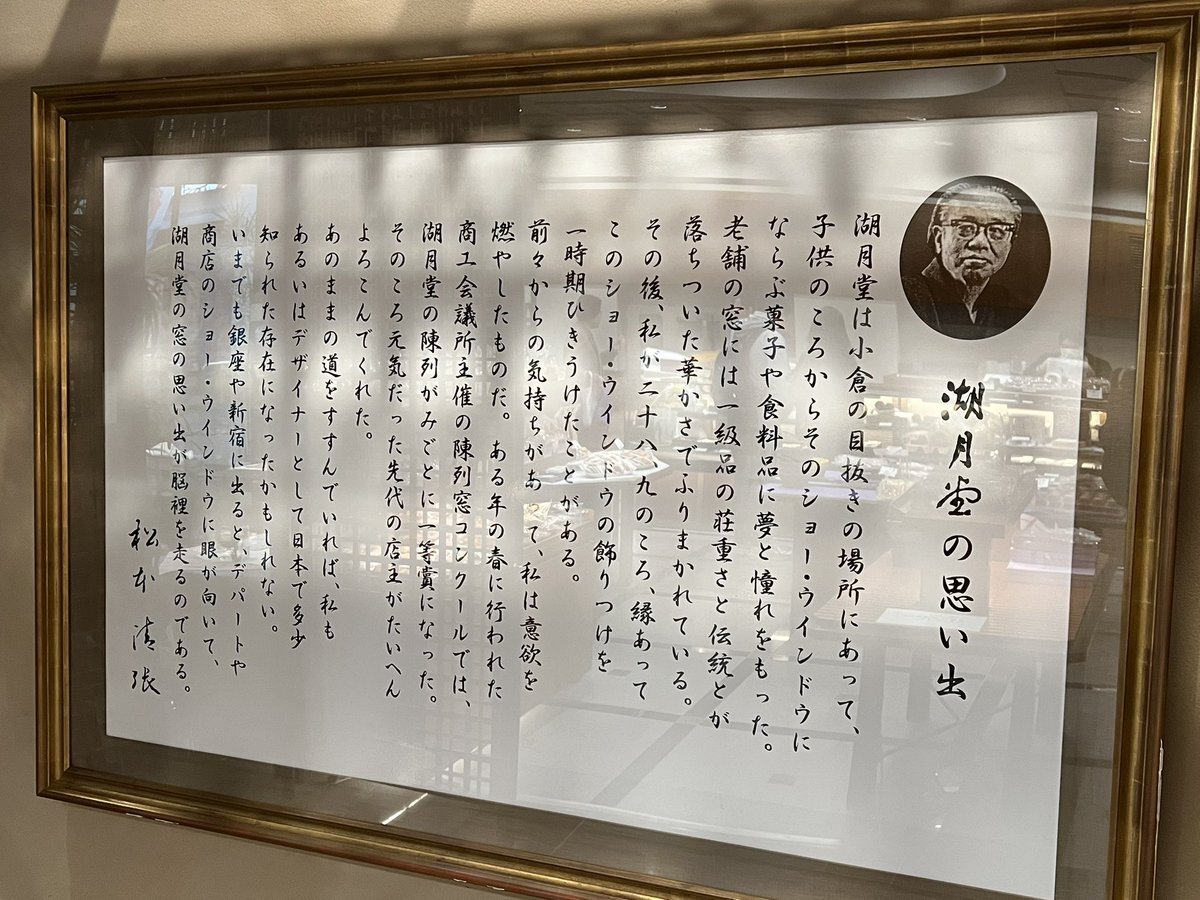 湖月堂の思い出
湖月堂は小倉の目抜きの場所にあって、
子供のころからそのショー・ウインドウに
ならぶ菓子や食料品に夢と憧れをもった。
老舗の窓には、一級品の荘重さと伝統とが
落ちついた華かさでふりまかれている。
その後、私が二十八、九のころ、縁あって
このショー・ウインドウの飾りつけを
一時期ひきうけたことがある。
前々からの気持ちがあって、私は意欲を
燃やしたものだ。ある年の春に行われた
商工会議所主催の陳列窓コンクールでは、
湖月堂の陳列がみごとに一等賞になった。
そのころ元気だった先代の店主がたいへん
よろこんでくれた。
あのままの道をすすんでいれば、私も
あるいはデザイナーとして日本で多少
知られた存在になったかもしれない。
いまでも銀座や新宿に出ると、デパートや
商店のショー・ウインドウに眼が向いて、
湖月堂の窓の思い出が脳裡を走るのである。
松本清張